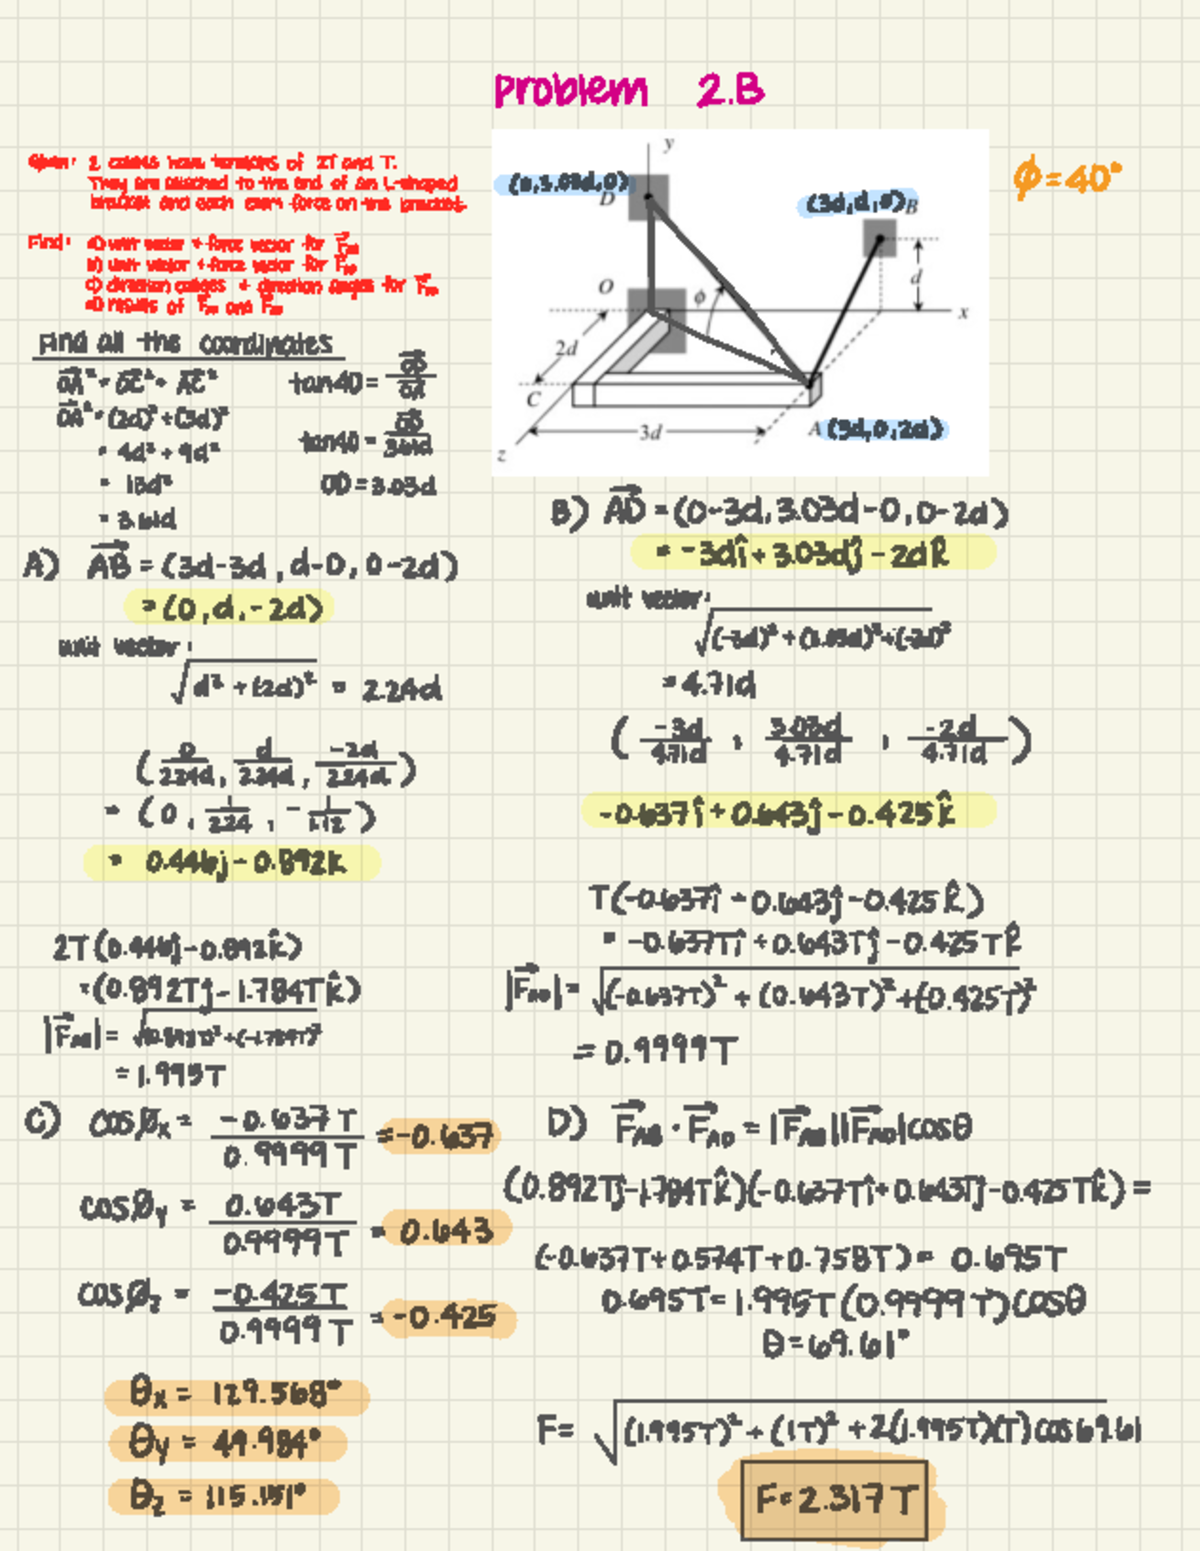 Problem 2.B
Given: 2 cables have tensions of 2T and T.
They are attached to the end of an L-shaped
bracket and each exert force on the bracket.
Find: a) unit vector + force vector for
b) unit vector + force vector for
c) direction + direction angles for
d) results of and
ϕ=40°
y
(0,3.03d,0)
D
(3d,d,0) B
O
ϕ
d
x
2d
C
3d
A (3d,0,2d)
z
Find all the coordinates
OA² = OC² + AC²
OA² = (2d)² + (3d)²
= 4d² + 9d²
= 13d²
= 3.61d
tan40 = OD/OA
tan40 = OD/3.61d
OD = 3.03d
A) AB = (3d-3d, d-0, 0-2d)
= (0, d, -2d)
unit vector:
√d² + (2d)² = 2.24d
(0/2.24d, d/2.24d, -2d/2.24d)
= (0, 1/2.24, -1/1.12)
= 0.446j - 0.892k
2T(0.446j - 0.892k̂)
= (0.892Tj - 1.784Tk̂)
|F_AB| = √(0.892T)² + (-1.784T)²
= 1.995T
B) AD = (0-3d, 3.03d-0, 0-2d)
= -3dî + 3.03dĵ - 2dk̂
unit vector:
√(-3d)² + (3.03d)² + (-2d)²
= 4.71d
(-3d/4.71d, 3.03d/4.71d, -2d/4.71d)
-0.637î + 0.643ĵ - 0.425k̂
T(-0.637î + 0.643ĵ - 0.425k̂)
= -0.637Tî + 0.643Tĵ - 0.425Tk̂
|F_AD| = √(-0.637T)² + (0.643T)² + (0.425T)²
= 0.9999T
C) cosØx = -0.637T/0.9999T = -0.637
cosØy = 0.643T/0.9999T = 0.643
cosØz = -0.425T/0.9999T = -0.425
θx = 129.568°
θy = 49.984°
θz = 115.151°
D) F_AB · F_AD = |F_AB||F_AD|cosθ
(0.892Tj - 1.784Tk̂)(-0.637Tî + 0.643Tĵ - 0.425Tk̂) =
(-0.637T + 0.574T + 0.758T) = 0.695T
0.695T = 1.995T(0.9999T)cosθ
θ = 69.61°
F = √(1.995T)² + (1T)² + 2(1.995T)(T)cos69.61
F = 2.317T